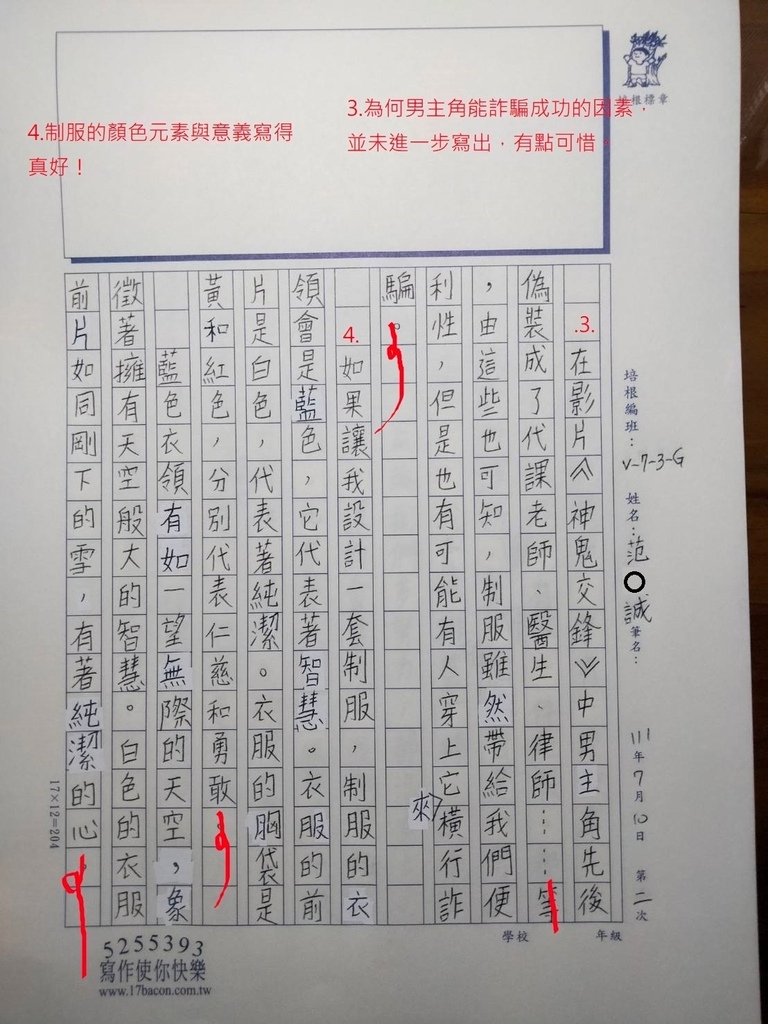 培根標章
3.為何男主角能詐騙成功的因素，
並未進一步寫出，有點可惜。
4.制服的顏色元素與意義寫得
真好！
培根編班：V-7-3-G 姓名：范〇誠 筆名： 111年7月10日 第二次
學校 年級
.3.
在影片《神鬼交鋒》中男主角先後
偽裝成了代課老師、醫生、律師……等
，由這些也可知，制服雖然帶給我們便
利性，但是也有可能有人穿上它來橫行詐
騙。
4.
如果讓我設計一套制服，制服的衣
領會是藍色，它代表著智慧。衣服的前
片是白色，代表著純潔。衣服的胸袋是
黃和紅色，分別代表仁慈和勇敢。
藍色衣領有如一望無際的天空，象
徵著擁有天空般大的智慧。白色的衣服
前片如同剛下的雪，有著純潔的心
17×12=204
5255393
寫作使你快樂
www.17bacon.com.tw